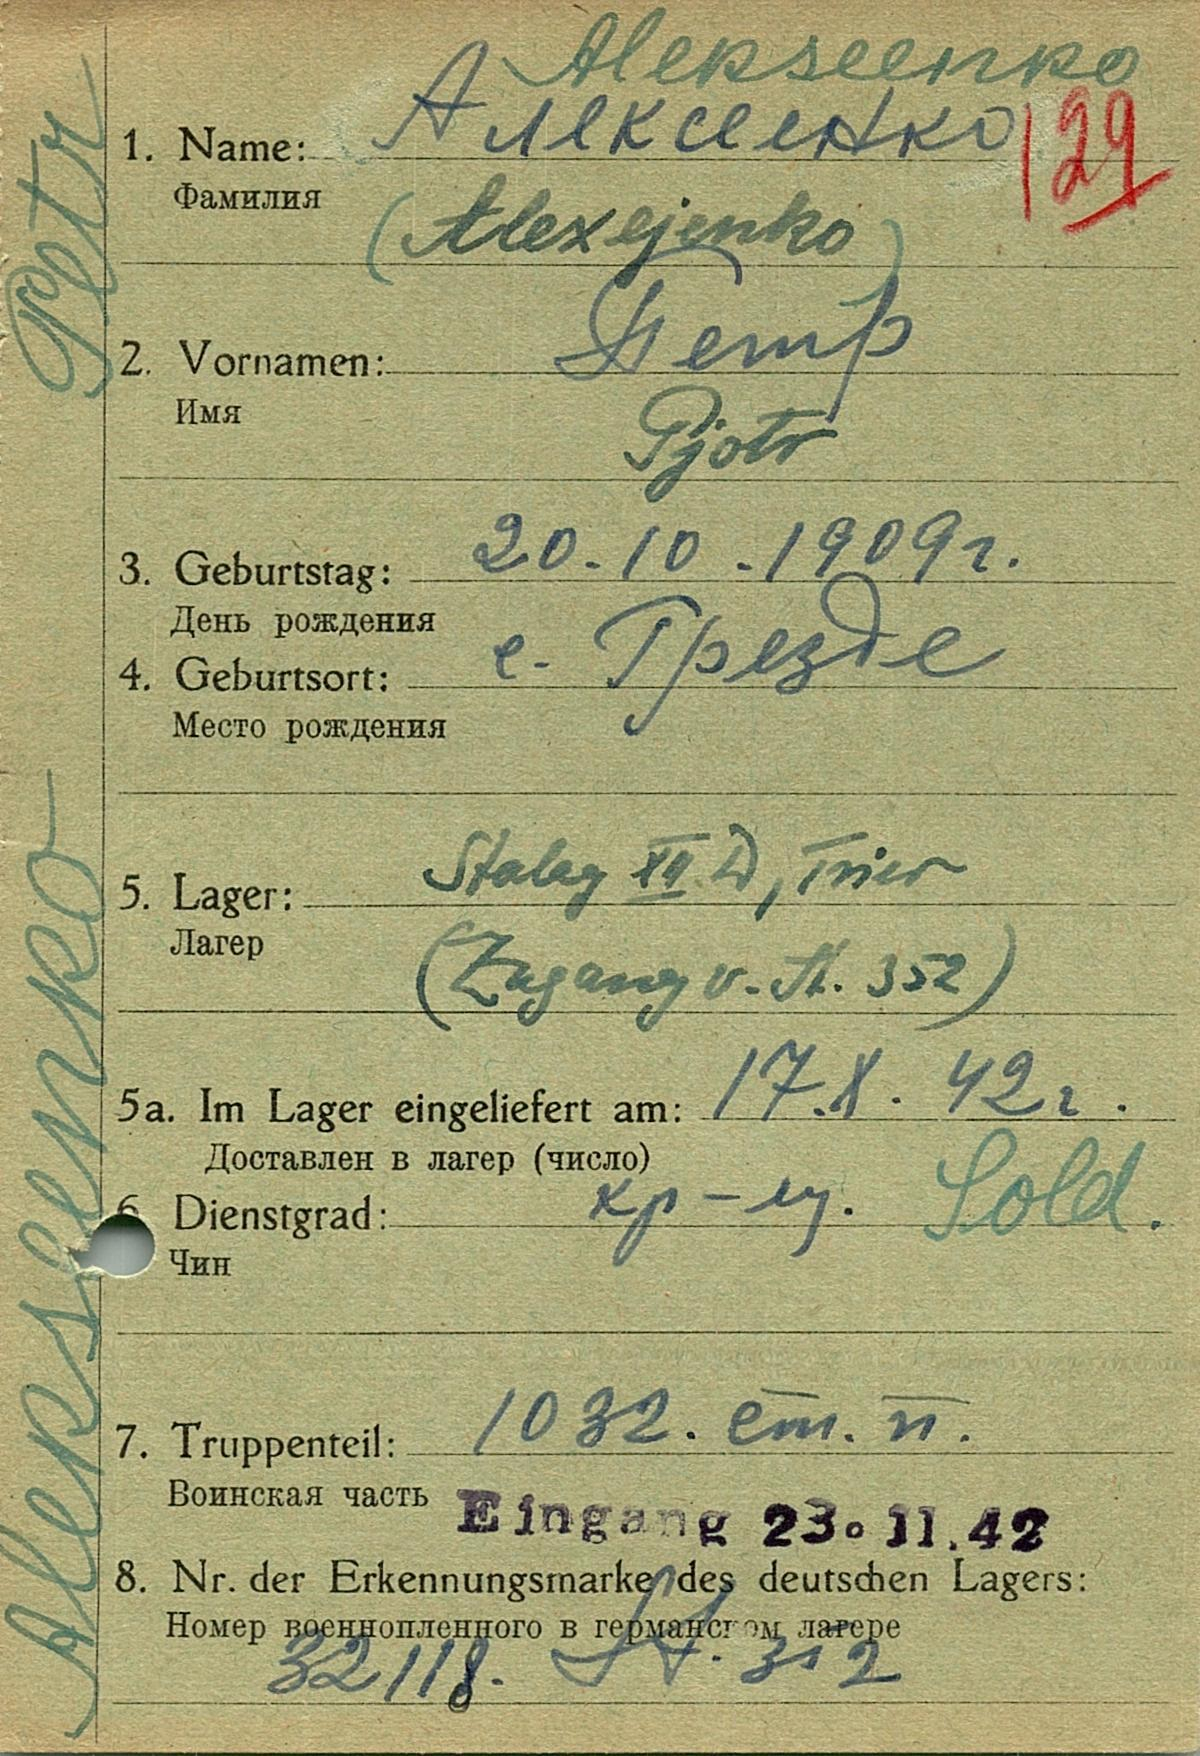 Alekseenko
1. Name: Алексеенко
129
Фамилия
(Alexejenko)
2. Vornamen: Петр
Имя
Pjotr
3. Geburtstag: 20.10.1909 г.
День рождения
4. Geburtsort: с. Грезде
Место рождения
5. Lager: Stalag XII D, Trier
Лагер
(Zugang v. St. 352)
5a. Im Lager eingeliefert am: 17.X. 42 г.
Доставлен в лагер (число)
6 Dienstgrad: кр-ец. Sold.
Чин
7. Truppenteil: 1032. ст. п.
Воинская часть
Eingang 23.11.42
8. Nr. der Erkennungsmarke des deutschen Lagers:
Номер военнопленного в германском лагере
32118. St. 352
Alekseenko Petr